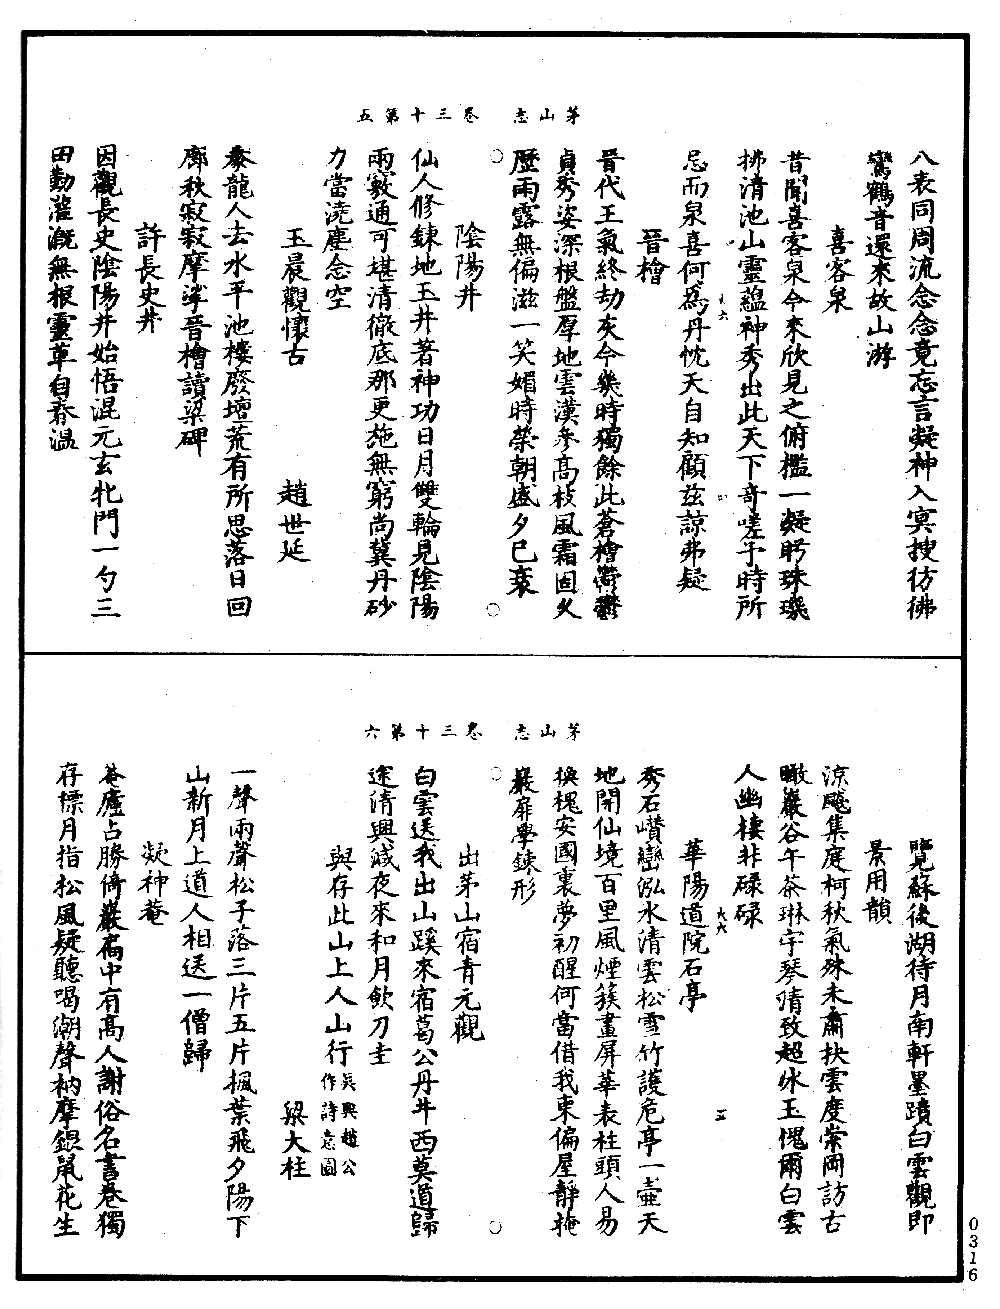 茅山志　卷三十第五
八表同周流念念竟忘言凝神入冥搜彷彿
鸞鶴音還來故山游
喜客泉
昔聞喜客泉今來欣見之俯檻一凝眄珠璣
拂清池山靈蘊神秀出此天下奇嗟予時所
忌而泉喜何為丹忱天自知顧茲諒弗疑
晉檜
晉代王氣終劫灰今幾時獨餘此蒼檜鬱鬱
貞秀姿深根盤厚地雲漢參高枝風霜固久
歷雨露無偏滋一笑媚時榮朝盛夕已衰
陰陽井
仙人修鍊地玉井著神功日月雙輪見陰陽
兩竅通可堪清徹底那更施無窮尚冀丹砂
力當澆塵念空
玉晨觀懷古　趙世延
豢龍人去水平池樓廢壇荒有所思落日回
廊秋寂寂摩挲晉檜讀梁碑
許長史井
因觀長史陰陽井始悟混元玄牝門一勺三
田勤灌溉無根靈草自春溫
茅山志　卷三十第六
覽蘇後湖待月南軒墨蹟白雲觀即
景用韻
涼飈集庭柯秋氣殊未肅扶雲度崇岡訪古
瞰巖谷午茶琳宇琴清致超冰玉愧爾白雲
人幽棲非碌碌
華陽道院石亭
秀石巑巒泓水清雲松雪竹護危亭一壺天
地開仙境百里風煙簇畫屏華表柱頭人易
換槐安國裏夢初醒何當借我東偏屋靜掩
巖扉學鍊形
出茅山宿青元觀
白雲送我出山蹊來宿葛公丹井西莫道歸
途清興減夜來和月飲刀圭
與存此山上人山行吳興趙公作詩意圖
梁大柱
一聲兩聲松子落三片五片楓葉飛夕陽下
山新月上道人相送一僧歸
凝神菴
菴廬占勝倚巖扃中有高人謝俗名書卷獨
存標月指松風疑聽喝潮聲衲摩銀鼠花生
0316